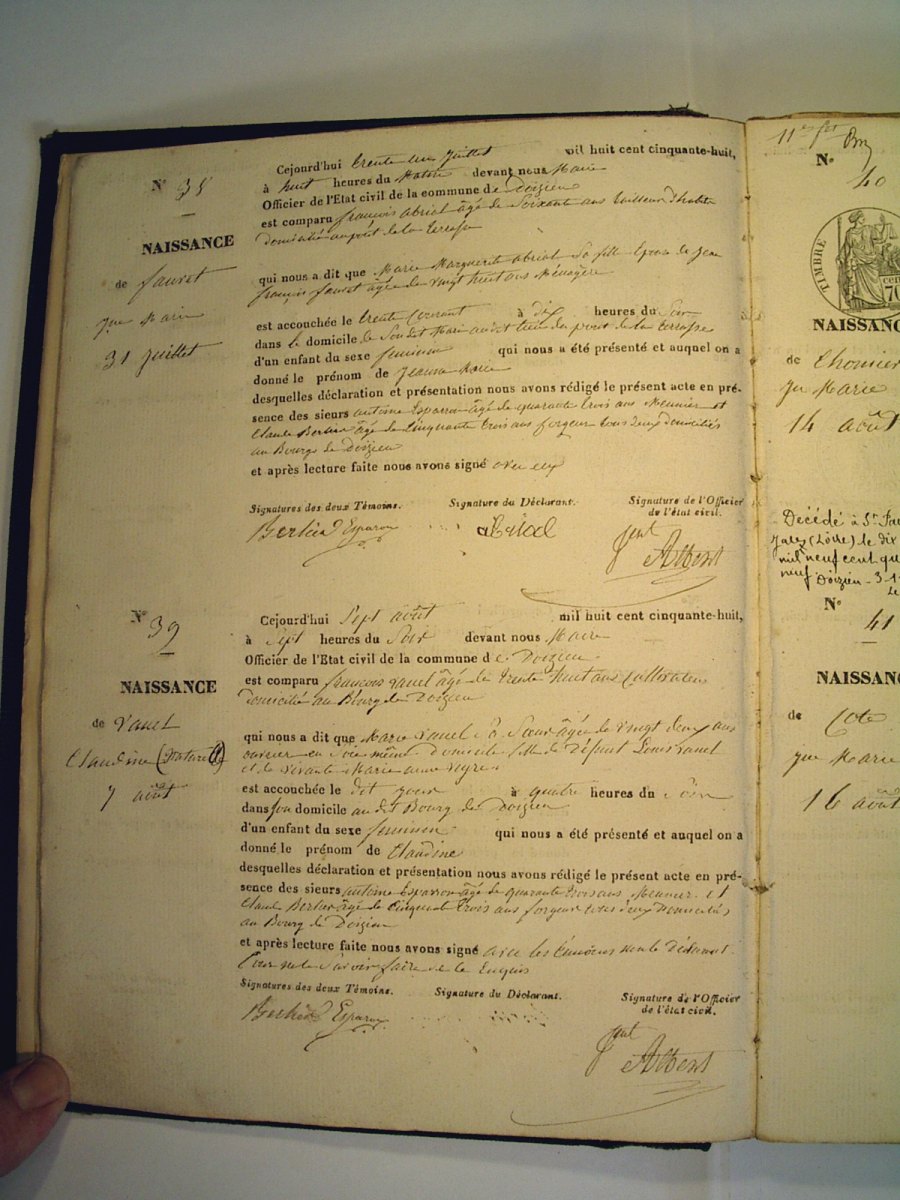 N° 38
NAISSANCE
de fauvet
Jne Marie
31 Juillet
Cejourd'hui trente un Juillet mil huit cent cinquante-huit,
à huit heures du Matin devant nous Maire
Officier de l'Etat civil de la commune de Doizieu
est comparu françois abrial âgé de Soixante ans tailleur d'habits
domicilié au pont de la terrasse
qui nous a dit que Marie Marguerite abrial Sa fille Epouse de Jean
françois fauvet agée de vingt huit ans Ménagère
est accouchée le trente Courant à dix heures du Soir
dans le domicile de Son dit Mari au dit lieu du pont de la terrasse
d'un enfant du sexe feminin qui nous a été présenté et auquel on a
donné le prénom de Jeanne Marie
desquelles déclaration et présentation nous avons rédigé le présent acte en pré-
sence des sieurs antoine Esparron âgé de quarante trois ans Meunier et
Claude Bertier âgé de Cinquante trois ans forgeur tous deux domiciliés
au Bourg de Doizieu
et après lecture faite nous avons signé avec eux
Signatures des deux Témoins. Signature du Déclarant. Signature de l'Officier
de l'état civil.
Esparron abrial
Albert
N° 39
NAISSANCE
de vanel
Claudine (Naturelle)
7 août
Cejourd'hui Sept août mil huit cent cinquante-huit,
à Sept heures du Soir devant nous Maire
Officier de l'Etat civil de la commune de Doizieu
est comparu françois vanel âgé de trente huit ans Cultivateur
domicilié au Bourg de Doizieu
qui nous a dit que Marie vanel Sa Sœur âgée de vingt deux ans
ouvrière en Soie même domicile fille de défunt Louis vanel
et de vivante Marie anne
est accouchée le dit jour à quatre heures du Soir
dans son domicile au dit Bourg de Doizieu
d'un enfant du sexe feminin qui nous a été présenté et auquel on a
donné le prénom de Claudine
desquelles déclaration et présentation nous avons rédigé le présent acte en pré-
sence des sieurs antoine Esparron âgé de quarante trois ans Meunier et
Claude Bertier âgé de Cinquante trois ans forgeur tous deux Domiciliés
au Bourg de Doizieu
et après lecture faite nous avons signé avec les témoins non le Déclarant
pour ne le Savoir faire de ce Enquis
Signatures des deux Témoins. Signature du Déclarant. Signature de l'Officier
de l'état civil.
Esparron
Albert
N°
40
TIMBRE
NAISSANC
de Thomier
Jn Marie
14 août
Décédé à St
(Loire) le dix
mil neuf cent
neuf Doizieu
N°
41
NAISSANC
de Cote
Jne Marie
16 août